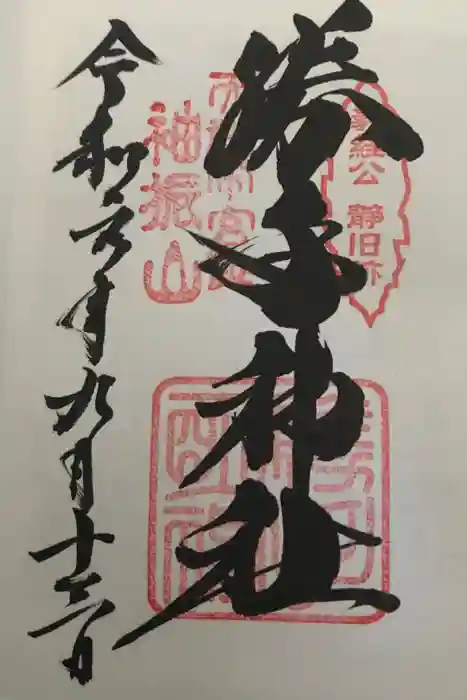 義経公 静旧跡
勝手神社
袖振山
令和元年九月十三日